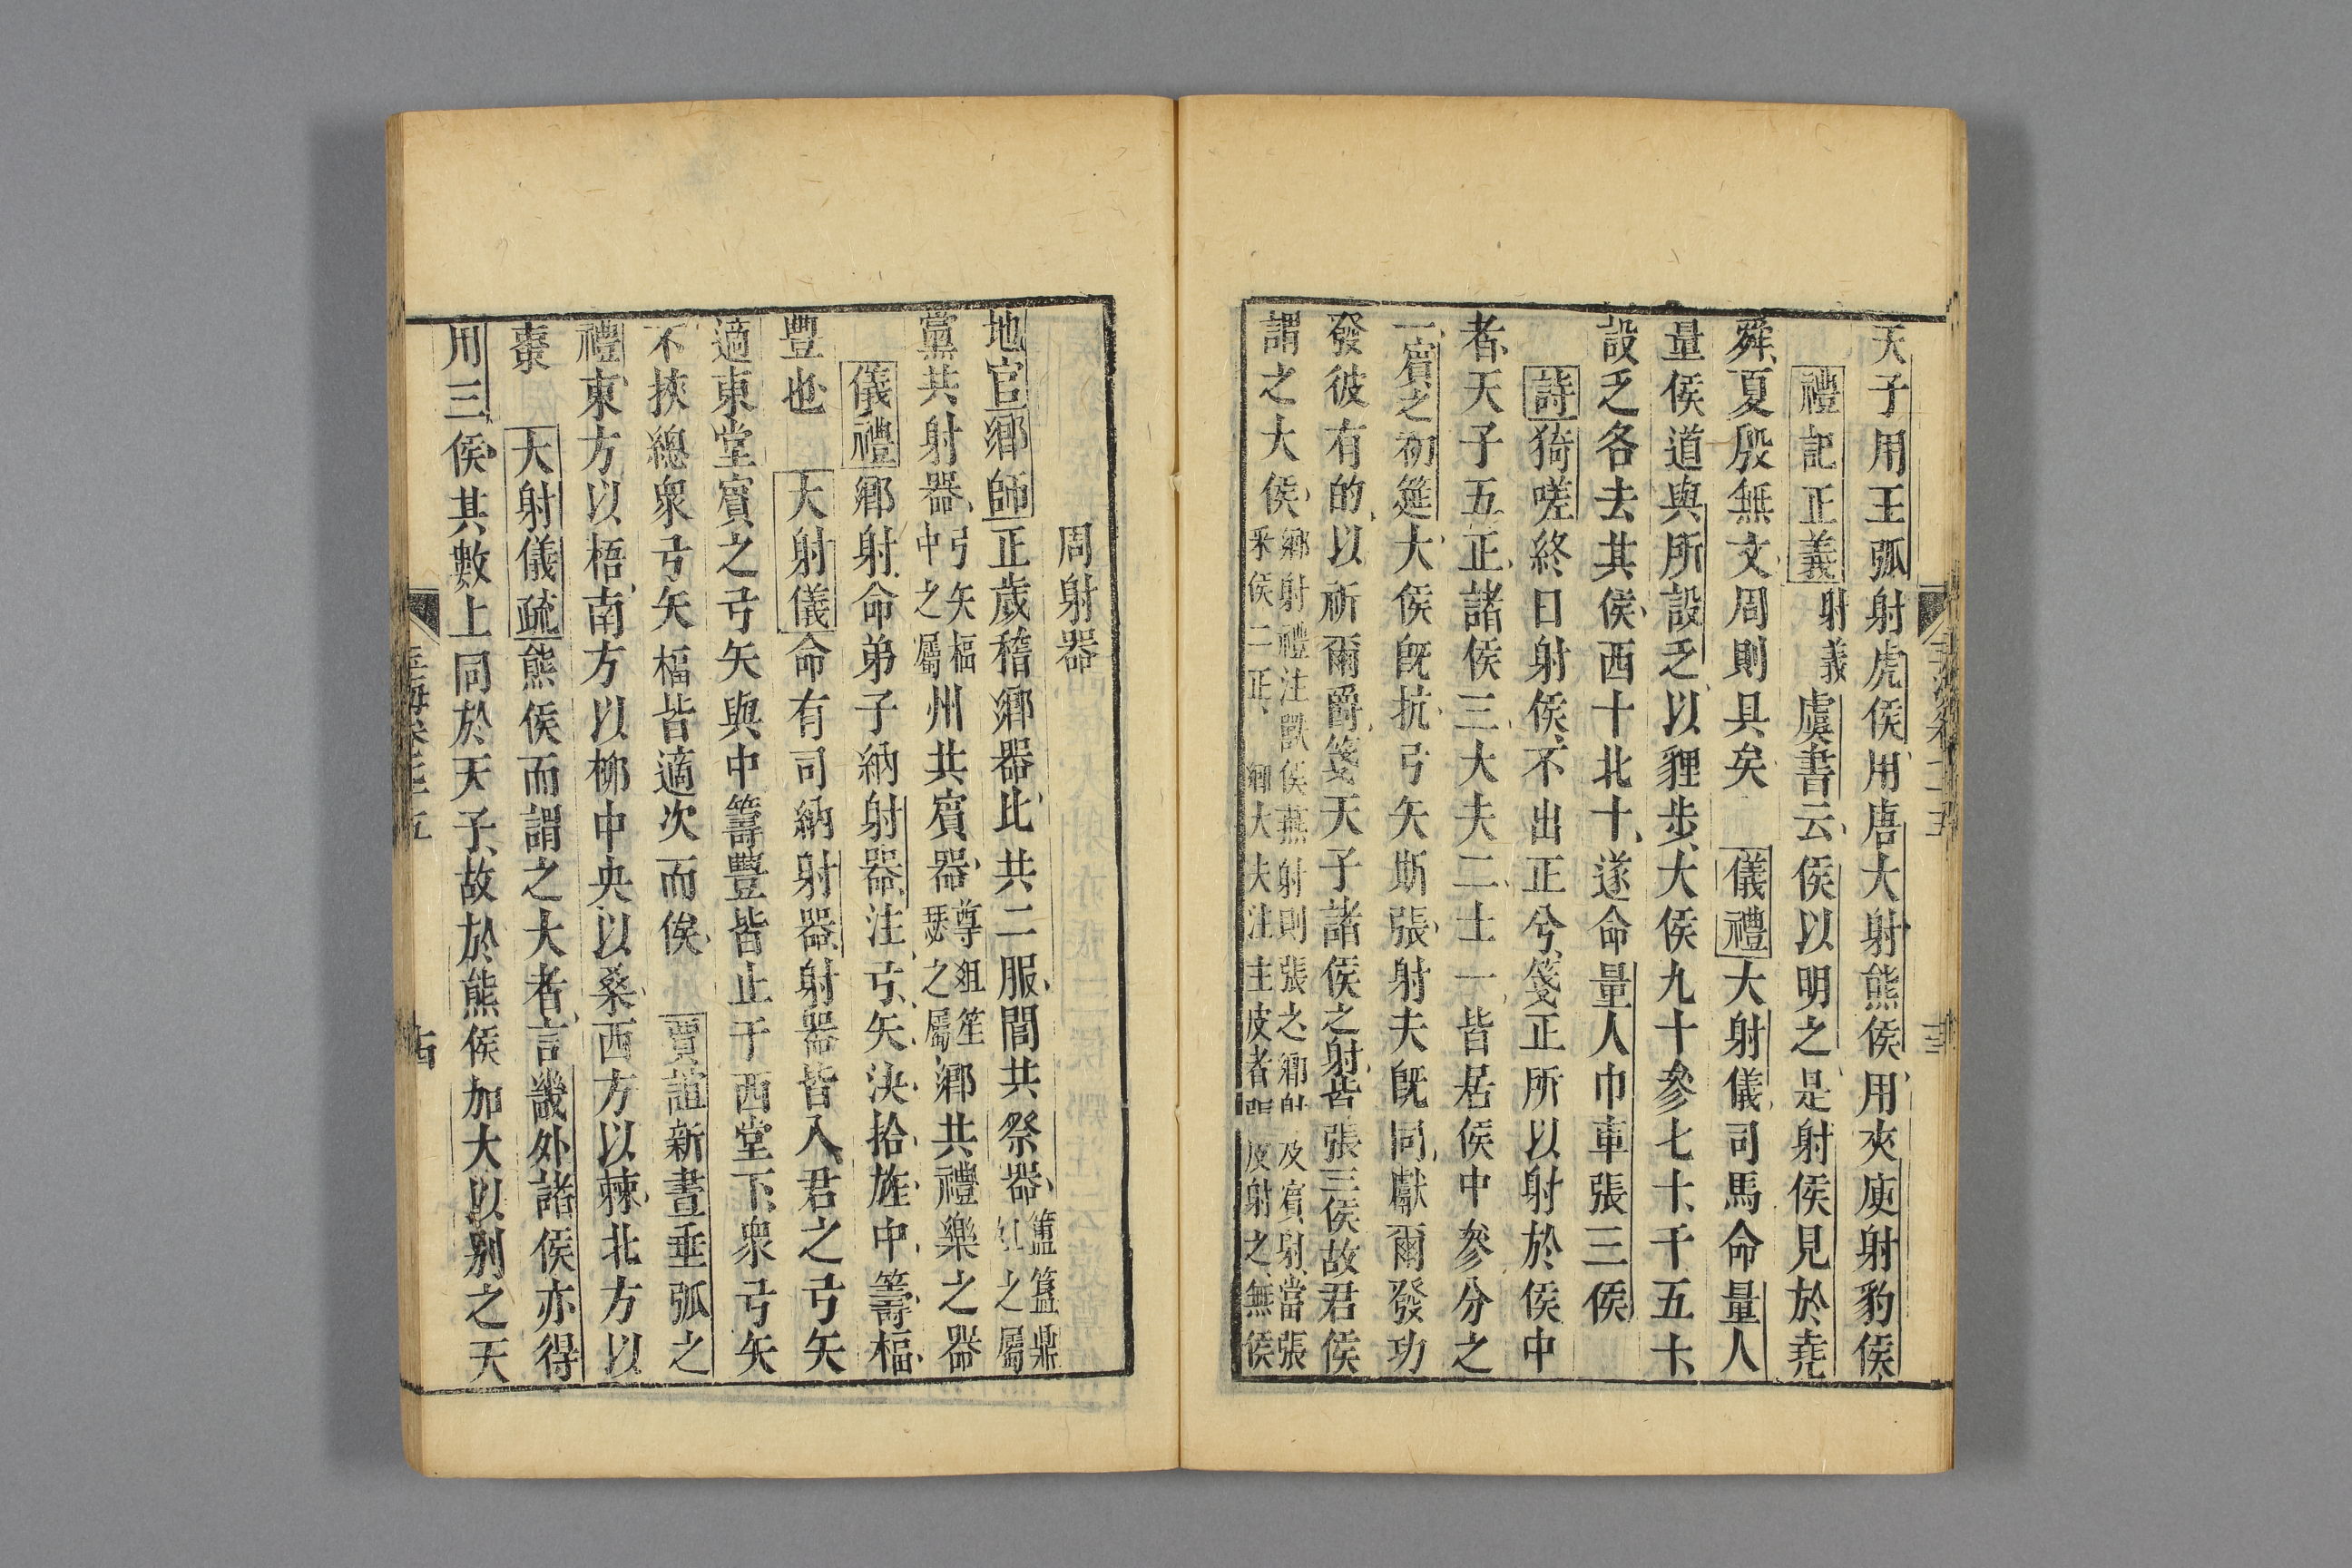 天子用王弧射虎侯用唐大射熊侯用夾庾射豹侯
禮記正義射義虞書云侯以明之是射侯見於堯
舜夏殷無文周則具矣儀禮大射儀司馬命量人
量侯道與所設乏以貍步大侯九十參七十干五十
設乏各去其侯西十北十遂命量人巾車張三侯
詩猗嗟終日射侯不出正兮箋正所以射於侯中
者天子五正諸侯三大夫二士一皆居侯中參分之
一賓之初筵大侯旣抗弓矢斯張射夫旣同獻爾發功
發彼有的以祈爾爵箋天子諸侯之射皆張三侯故君侯
謂之大侯
鄉射禮注獸侯燕射則張之鄉射及賓射當張
釆侯二正鄉大夫注主皮者張皮射之無侯
周射器
地官鄉師正歲稽鄉器比共二服閭共祭器
簠簋鼎
之屬
黨共射器
弓矢楅
中之屬
州共賓器
尊俎笙
瑟之屬
鄉共禮樂之器
儀禮鄉射命弟子納射器注弓矢決拾旌中籌楅
豐也大射儀命有司納射器射器皆入君之弓矢
適東堂賓之弓矢與中籌豐皆止于西堂下衆弓矢
不挾總衆弓矢楅皆適次而俟賈誼新書垂弧之
禮東方以梧南方以柳中央以桑西方以棘北方以
棗大射儀疏熊侯而謂之大者言畿外諸侯亦得
用三侯其數上同於天子故於熊侯加大以別之天